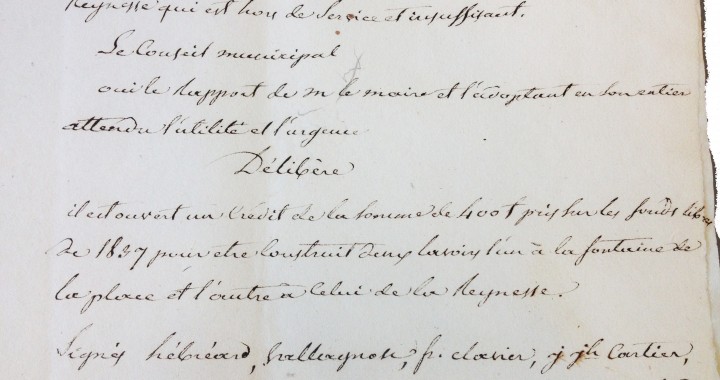 Reynesse qui est hors de service et insuffisant.
Le Conseil municipal
oui le Rapport de m le maire et l'adoptant en son entier
attendu l'utilité et l'urgence
Délibère
il est ouvert un Crédit de la somme de 400 f pris sur les fonds libres
de 1837 pour etre construit deux lavoirs l'un à la fontaine de
la place et l'autre a celui de la Reynesse.
Signés hébréard, fr. clavier, j jh Cartier,